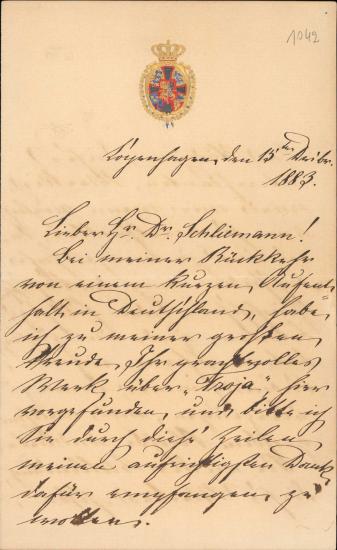 1042
Kopenhagen, den 15ten Decbr.
1883.
Lieber Hr. Dr. Schliemann!
Bei meiner Rückkehr
von einem kurzen Aufent-
halt in Deutschland, habe
ich zu meiner großen
Freude, Ihr prachtvolles
Werk über „Troja“ hier
vorgefunden, und bitte ich
Sie durch diese Zeilen
meinen aufrichtigsten Dank
dafür empfangen zu
wollen.